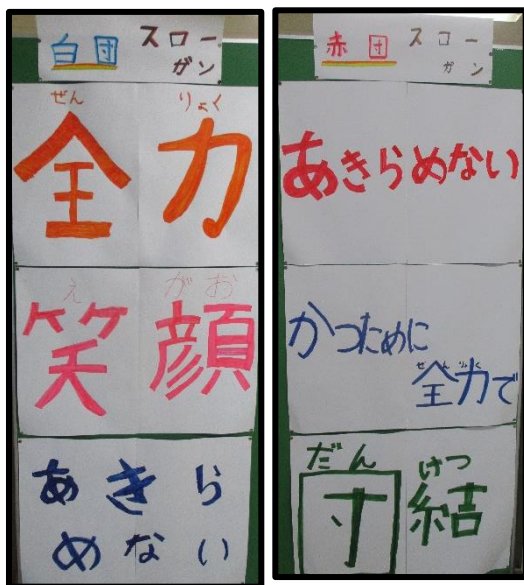 白団 スロー
ガン
ぜん りょく
全力
え がお
笑顔
あきら
めない
赤団 スロー
ガン
あきらめない
かつために
ぜんりょく
全力で
だん けつ
団結